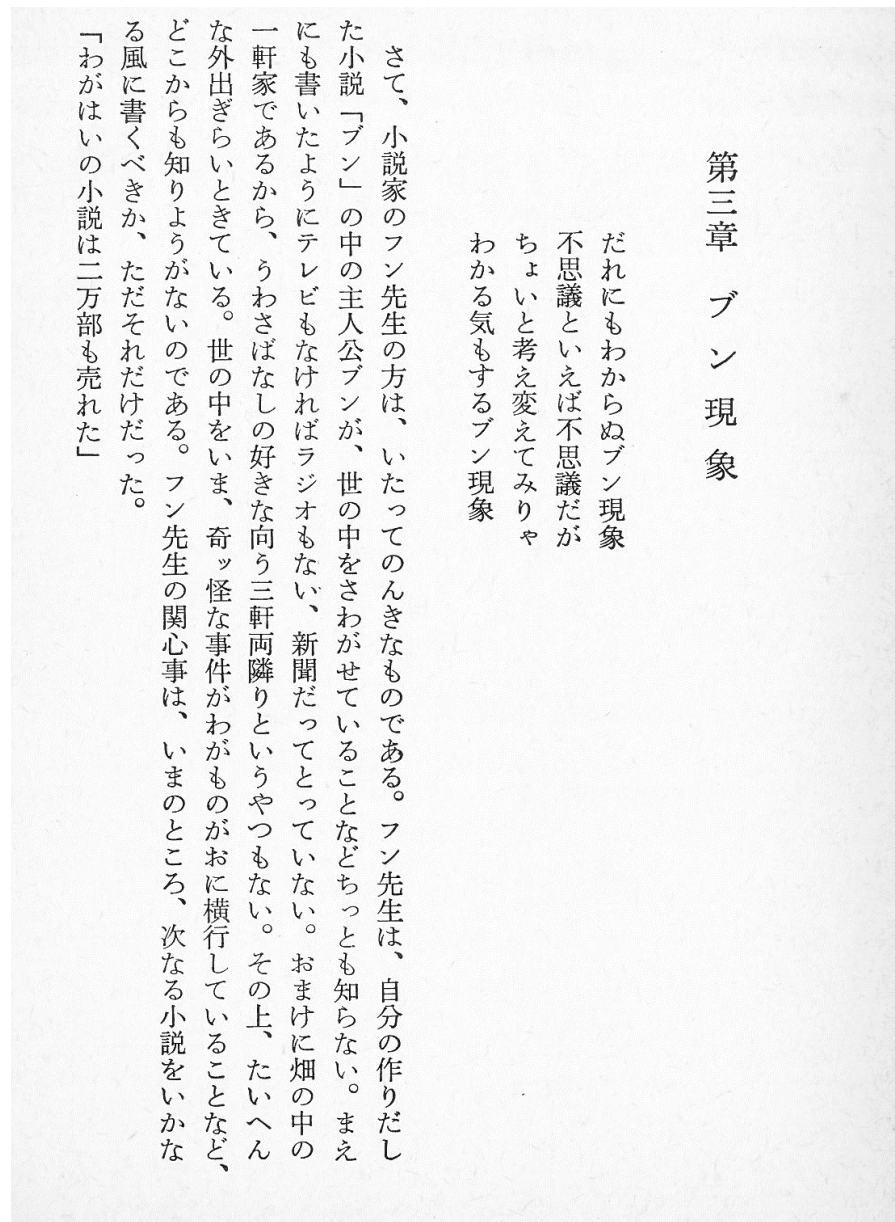 第三章　ブン現象
だれにもわからぬブン現象
不思議といえば不思議だが
ちょいと考え変えてみりゃ
わかる気もするブン現象
さて、小説家のフン先生の方は、いたってのんきなものである。フン先生は、自分の作りだし
た小説「ブン」の中の主人公ブンが、世の中をさわがせていることなどちっとも知らない。まえ
にも書いたようにテレビもなければラジオもない、新聞だってとっていない。おまけに畑の中の
一軒家であるから、うわさばなしの好きな向う三軒両隣りというやつもない。その上、たいへん
な外出ぎらいときている。世の中をいま、奇ッ怪な事件がわがものがおに横行していることなど、
どこからも知りようがないのである。フン先生の関心事は、いまのところ、次なる小説をいかな
る風に書くべきか、ただそれだけだった。
「わがはいの小説は二万部も売れた」